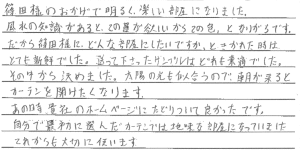 篠田様のおかげで明るく、楽しい部屋になりました。
風水の知識があると、この運が欲しいからこの色、となりがちです。
だから篠田様に、どんな部屋にしたいですか、ときかれた時は
とても新鮮でした。送って下さったサンプルはどれも素適でした。
その中から決めました。太陽の光も似合うので、朝が来ると
カーテンを開けたくなります。
あの時貴社のホームページにたどりついて良かったです。
自分で最初に選んだカーテンでは地味な部屋になっていました
これからも大切に使います